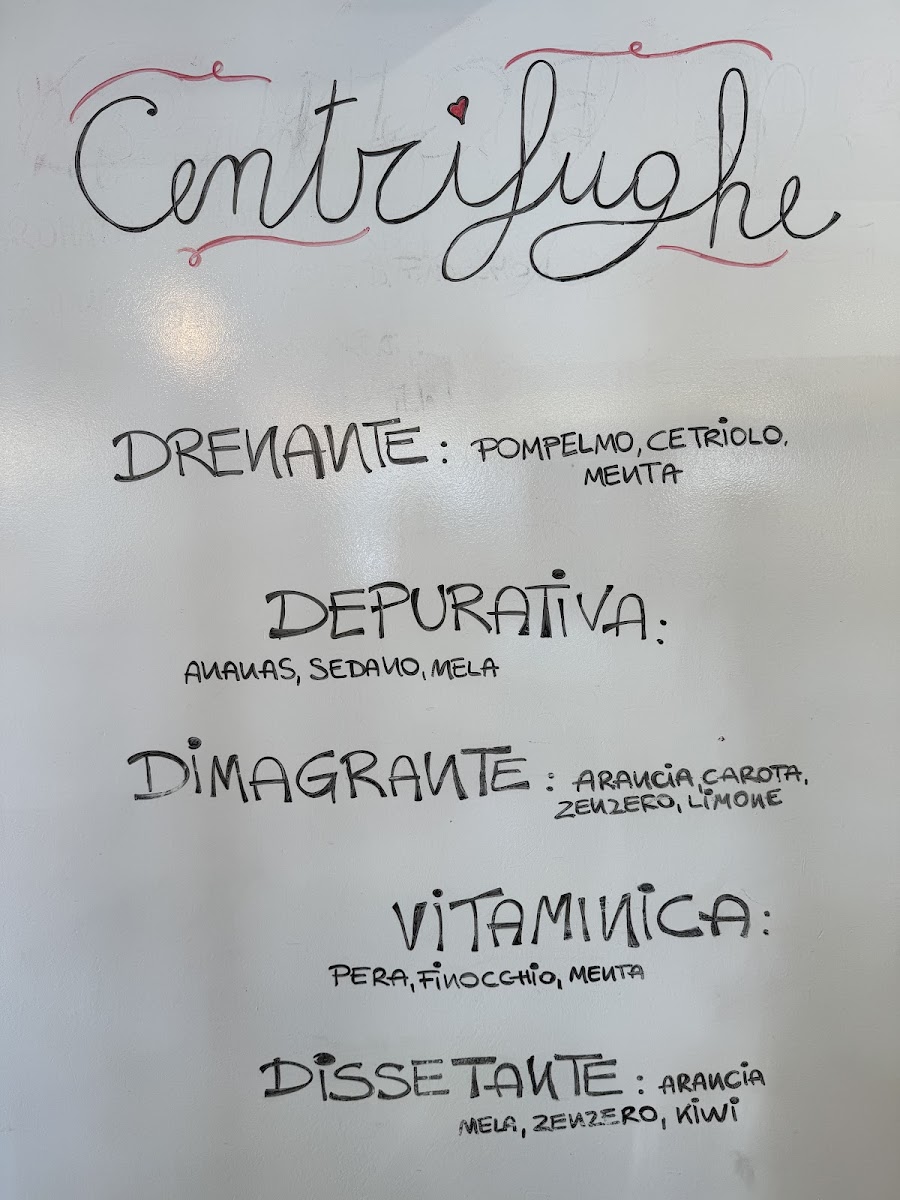 Centrifughe
DRENANTE: POMPELMO, CETRIOLO,
MENTA
DEPURATIVA:
ANANAS, SEDANO, MELA
DIMAGRANTE: ARANCIA, CAROTA,
ZENZERO, LIMONE
VITAMINICA:
PERA, FINOCCHIO, MENTA
DISSETANTE: ARANCIA
MELA, ZENZERO, KIWI